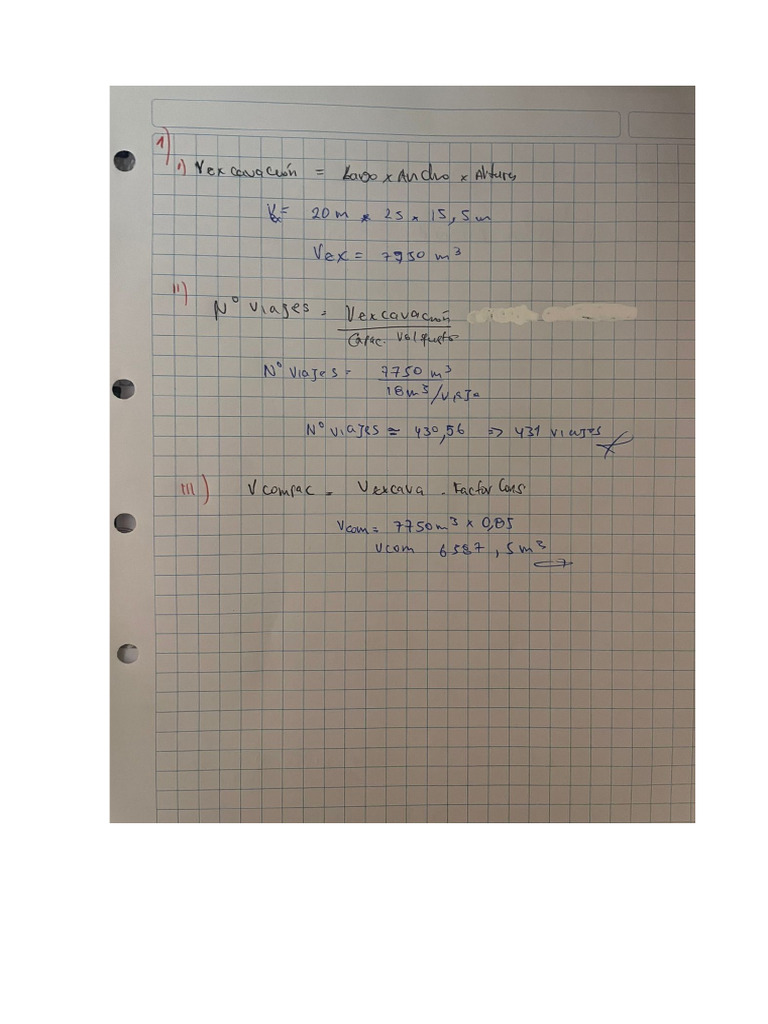 1)
i) Vexcavación = Largo x Ancho x Altura
Vex = 20 m x 25 x 15,5 m
Vex = 7750 m³
ii)
N° Viajes = Vexcavación
Capac. Volqueta
N° Viajes = 7750 m³
18 m³/viaje
N° Viajes = 430,56 => 431 viajes
iii) Vcompac = Vexcava . Factor Cons
Vcom = 7750 m³ x 0,85
Vcom 6587,5 m³